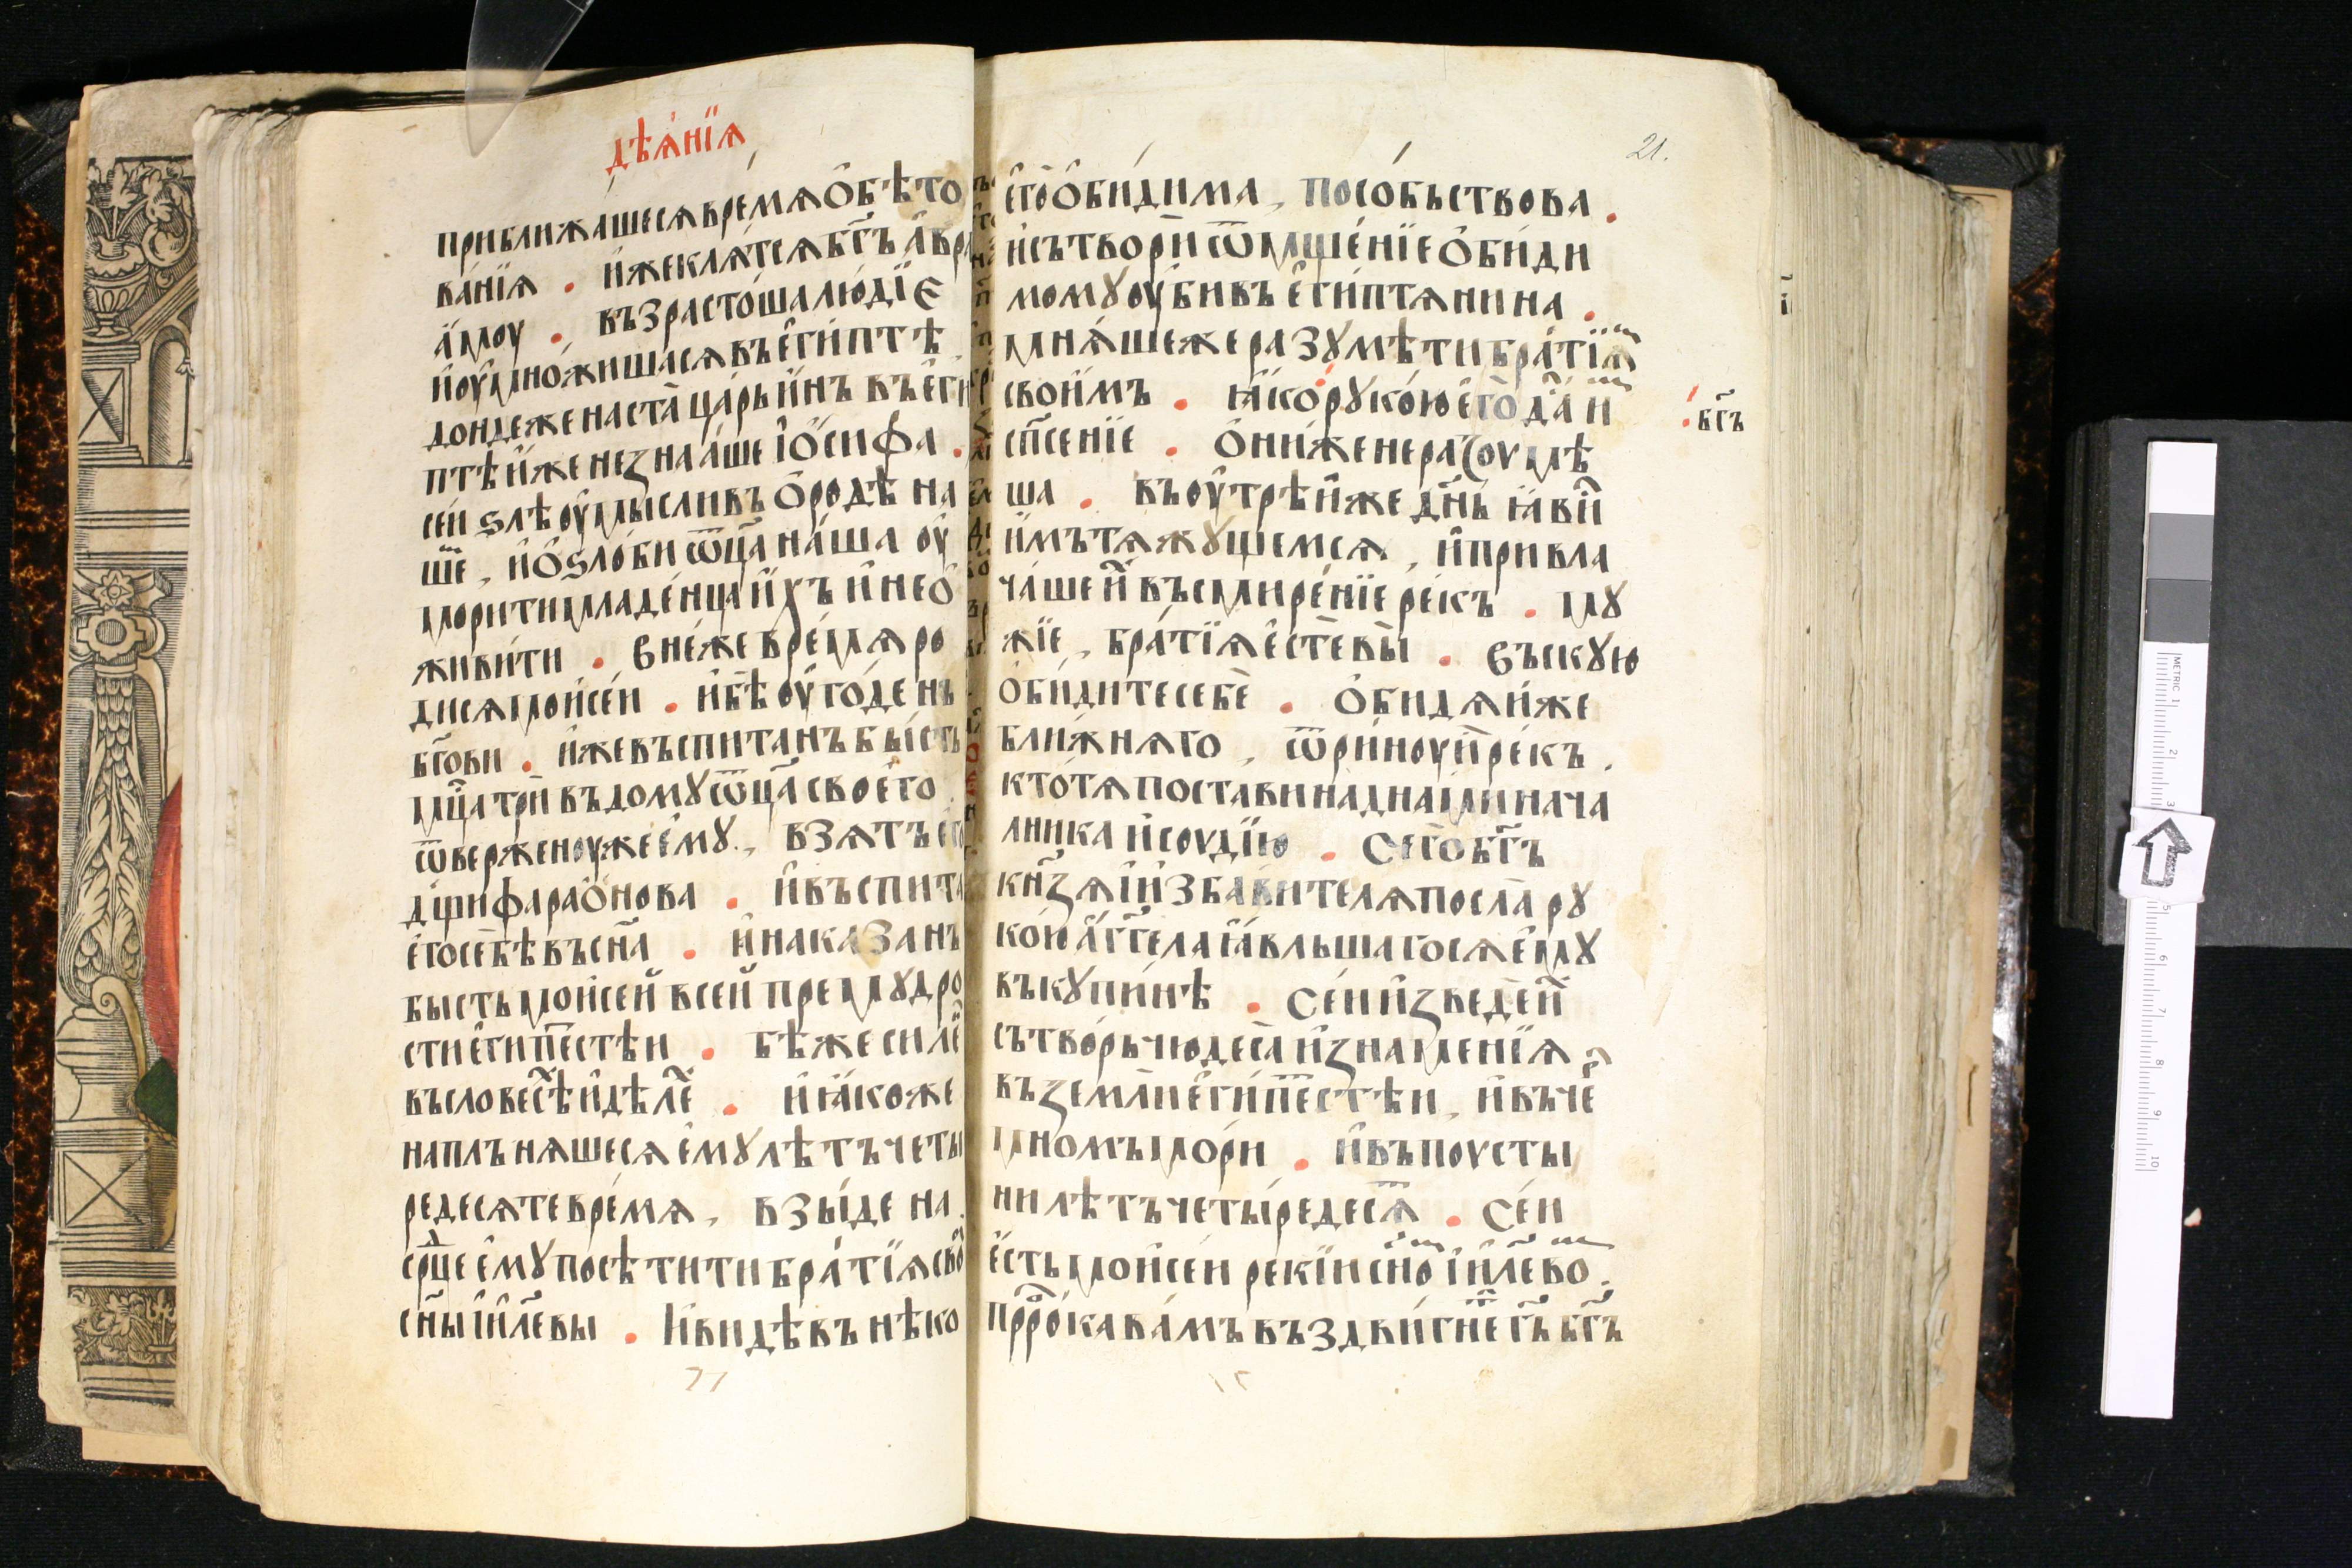 дѣѧ҆нїѧ
приближашесѧ времѧ ѻ҆бѣто
ва́нїѧ . и҆́же клѧ́тсѧ бг҃ъ а҆вра
а҆́моу . въз̾расто́ша лю́дїє
и҆ оу҆мно́жишасѧ въ є҆ги́птѣ .
дондеже наста̀ ца́рь и҆́нъ въ є҆ги
птѣ и҆́же не ꙁнаѧ́ше і҆ѻ́сифа .
се́и ѕлѣ̀ оу҆мысливъ ѻ҆ ро́дѣ на
ше , и҆ ѻ҆ѕло́би ѿц҃а на́ша оу҆
морити младе́нца и҆́хъ и҆ не ѻ҆
живи́ти . в не́же вре́мѧ ро
дисѧ мои҆се́и . и҆ бѣ̀ оу҆го́денъ
бг҃ови . и҆́же въспита́нъ бы́сть
мц҃а трѝ въ домꙋ ѿц҃а своего̀ .
ѿверженоу же є҆мꙋ̀ , взѧтъ є҆го
дщ҃и фараѻ҆нова . и҆ въспита
є҆го себѣ̀ въ сн҃а . и҆ наказанъ
бысть мои҆се́й все́й премꙋдро
сти є҆гипе́стѣи . бѣ́ же силе
въ словесѣ и҆ дѣле . и҆ ꙗ҆коже
наплънѧшесѧ є҆мꙋ лѣтъ четы
редесѧте вре́мѧ , взы́де на
ср҃це є҆мꙋ посѣтити бра́тїѧ сво
сн҃ы і҆и҃левы . И҆ видѣвъ нѣко
21.
є҆го̀ ѻ҆би́дима , посо́бьствова .
и҆ сътворѝ ѿмще́нїе ѻ҆би́ди
момꙋ оу҆би́въ є҆ги́птѧнина .
мнѧ́ше же разꙋмѣ́ти бра́тїѧ
свои҆́мъ . ꙗ҆́ко рꙋко́ю є҆го̀ да́ и
. бг҃ъ
сп҃сенїе . ѻ҆ни́ же не раꙁоумѣ
ша . въ оу҆́трѣи же дн҃ь ꙗ҆ви
и҆́мъ тѧжꙋщемсѧ , и҆ привла
ча́ше и҆̀ въ смире́нїе ре́къ . мꙋ
жїе , бра́тїѧ є҆стѐ вы̀ . въскꙋю
ѻ҆би́дите себѐ . ѻ҆бидѧ́и же
бли́жнѧго , ѿри́ноу и҆̀ ре́къ .
кто́ тѧ поста́ви на́д нами нача
лника и҆ соудїю . Сего̀ бг҃ъ
кн҃ꙁѧ и҆ и҆збави́телѧ посла̀ рꙋ
ко́ю а҆́гг҃ела ꙗ҆́вльшагосѧ є҆мꙋ
въ кꙋпи́нѣ . Се́и и҆ꙁведѐ и҆̀
сътво́рь чюдеса̀ и҆ ꙁна́менїѧ
въ ꙁемлѝ є҆ги́пестѣи , и҆ въ че
мномъ мо́ри . и҆ въ поусты
ни лѣтъ четы́редесѧ . Се́и
є҆сть мои҆се́и рекїи сн҃о і҆и҃лево .
прⷪ҇рока ва́мъ въздви́гне гь҃ бг҃ъ